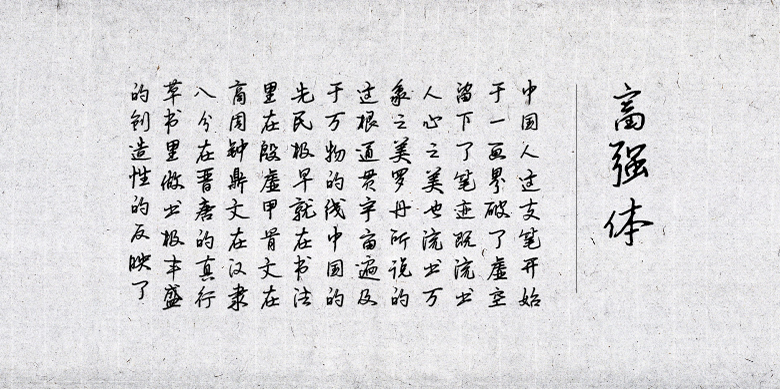 富强体
中国人这支笔开始
于一画界破了虚空
留下了笔迹既流出
人心之美也流出万
象之美罗丹所说的
这根通贯宇宙遍及
于万物的线中国的
先民极早就在书法
里在殷虚甲骨文在
商周钟鼎文在汉隶
八分在晋唐的真行
草书里做出极丰盛
的创造性的反映了